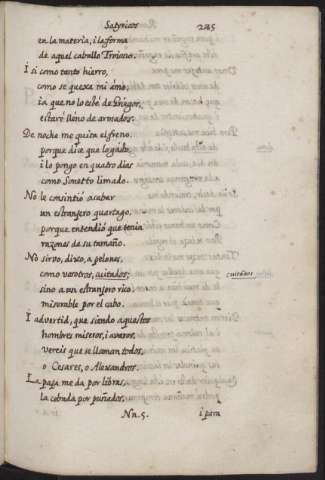 Satyricos 285
en la materia, i la forma
de aquel caballo Troiano.
I si como tanto hierro,
como se quexa mi amo,
ia que no lo echè de Griegos,
estarè lleno de armados.
De noche me quita el freno.
porque dice que lo gasto,
i lo pongo en quatro dias
como Sonetto limado.
No le consintiò acabar
un estranjero quartago,
porque entendiò que tenia
razones de su tamaño.
No sirvo, dixo, a pelones,
como vosotros, cuitados;
cuitados
sino a un estranjero rico,
miserable por el cabo.
I advertid, que siendo aquestos
hombres miseros, i avaros,
vereis que se llaman todos,
o Cesares, o Alexandros.
La paja me da por libras,
la cebada por puñados,
Nn. 5. i para